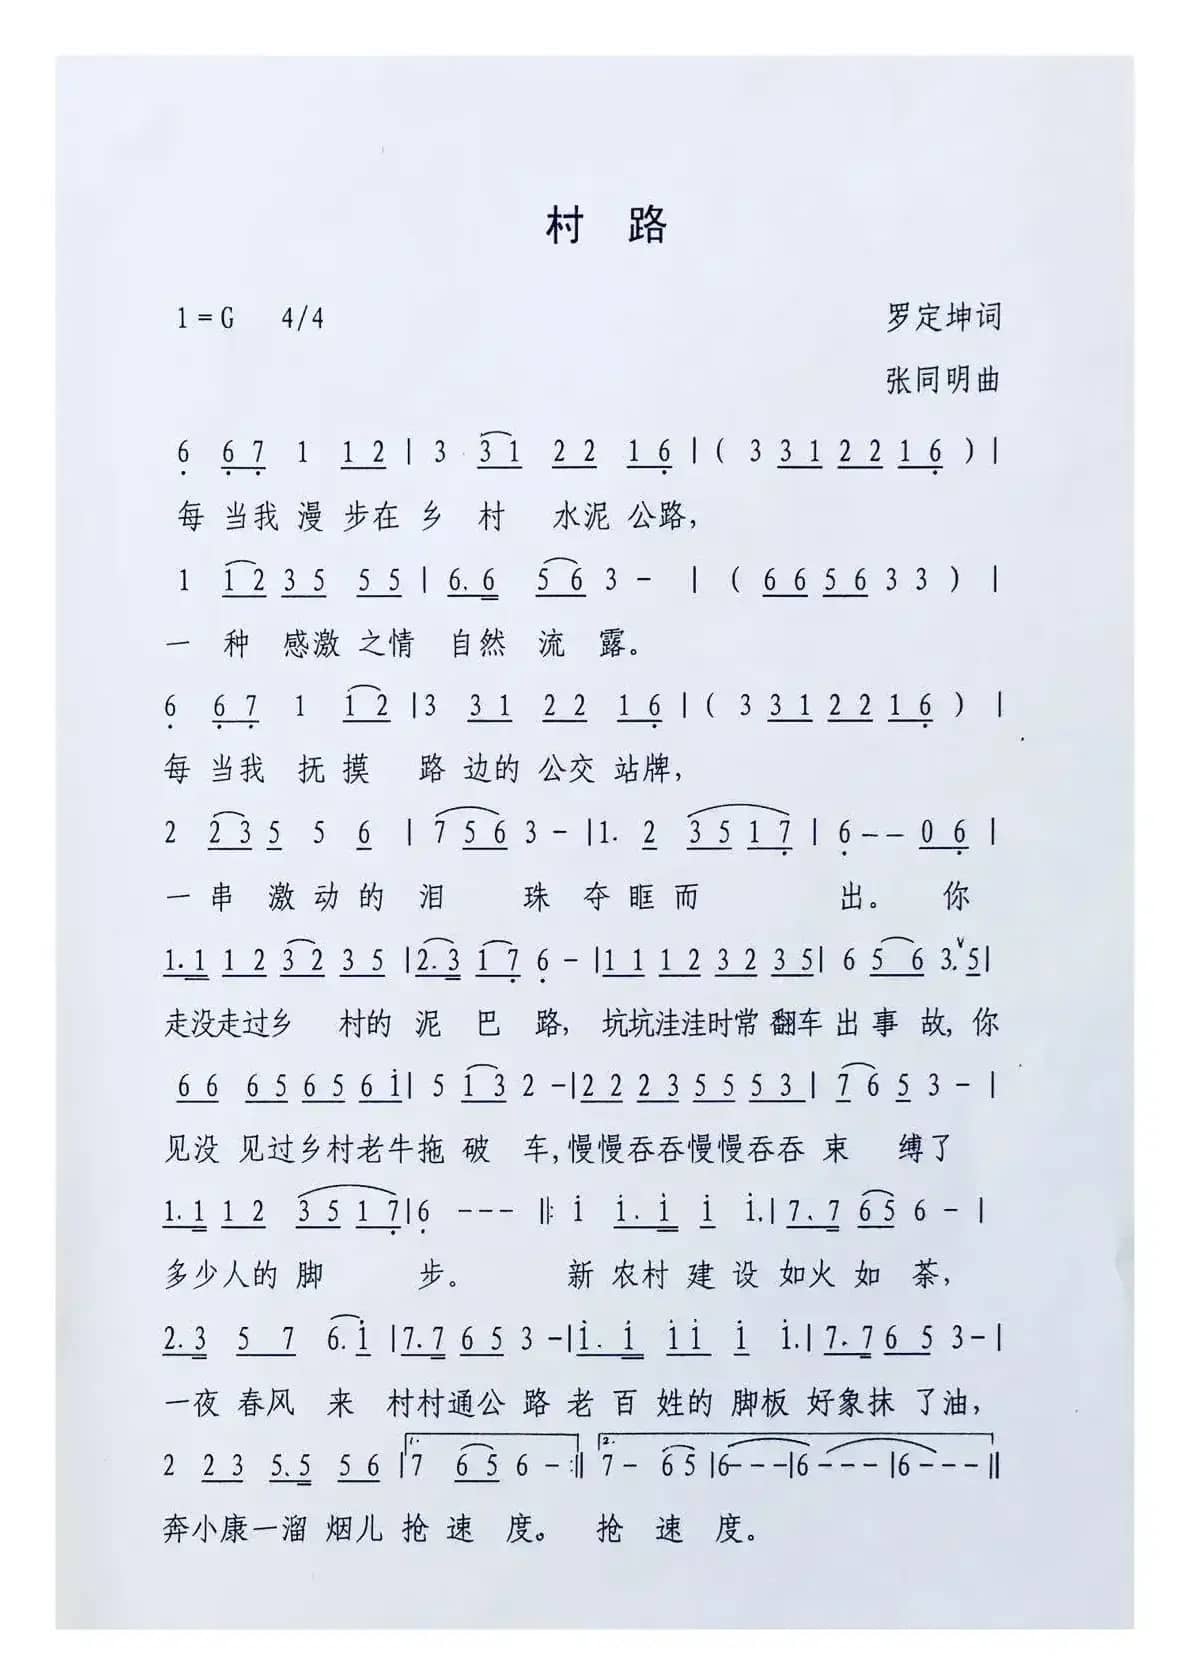 村 路
1=G 4/4 罗定坤词
张同明曲
6 67 1 12 | 3 31 22 16 | ( 3 31 22 16 ) |
每 当我 漫 步在 乡 村 水泥 公路，
1 12 35 55 | 6.6 56 3 - | ( 66 56 3 3 ) |
一 种 感激 之情 自然 流 露。
6 67 1 12 |3 31 22 16 | ( 3 31 22 16 ) |
每 当我 抚 摸 路 边的 公交 站牌，
2 23 5 5 6 | 7 56 3 - |1. 2 3517 | 6 -- 06 |
一 串 激 动 的 泪 珠 夺 眶 而 出。 你
1.1 12 32 35 |2.3 17 6 - |11 12 32 35| 6 56 3.5|
走没走过乡 村的 泥 巴 路， 坑坑洼洼时常 翻车 出 事 故，你
66 65 65 6i| 5 13 2 -|2223 5553| 765 3 - |
见没 见过乡村老牛拖 破 车，慢慢吞吞慢慢吞吞 束 缚了
1.1 12 3517|6 --- ‖: i i.i i i.| 7.7 65 6 - |
多少人的 脚 步。 新 农村 建 设 如火 如 荼，
2.3 5 7 6.i |7.7 65 3 -|i.i ii i i.| 7.7 65 3- |
一夜 春风 来 村村通公 路 老 百 姓的 脚板 好象抹 了油，
2 23 5.5 56 |1. 7 65 6 - :‖ 2. 7 - 65 |6---|6--- |6--- ‖
奔小康一溜 烟儿 抢 速 度。 抢 速 度。